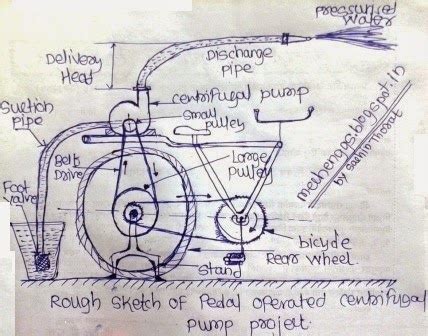 Pressurised
Water
Delivery
Head
Discharge
pipe
Suction
pipe
centrifugal pump
Small
pulley
Belt
Drive
Large
pulley
Foot
valve
bicycle
Rear wheel.
Stand
mechengps.blogspot.in
by Sachin Thorat
Rough Sketch of Pedal operated centrifugal
pump project.